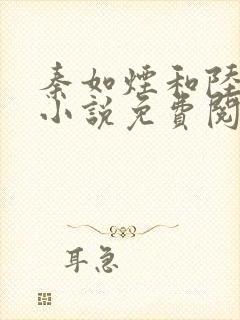 秦如煙和陸
小說免費閱
耳急